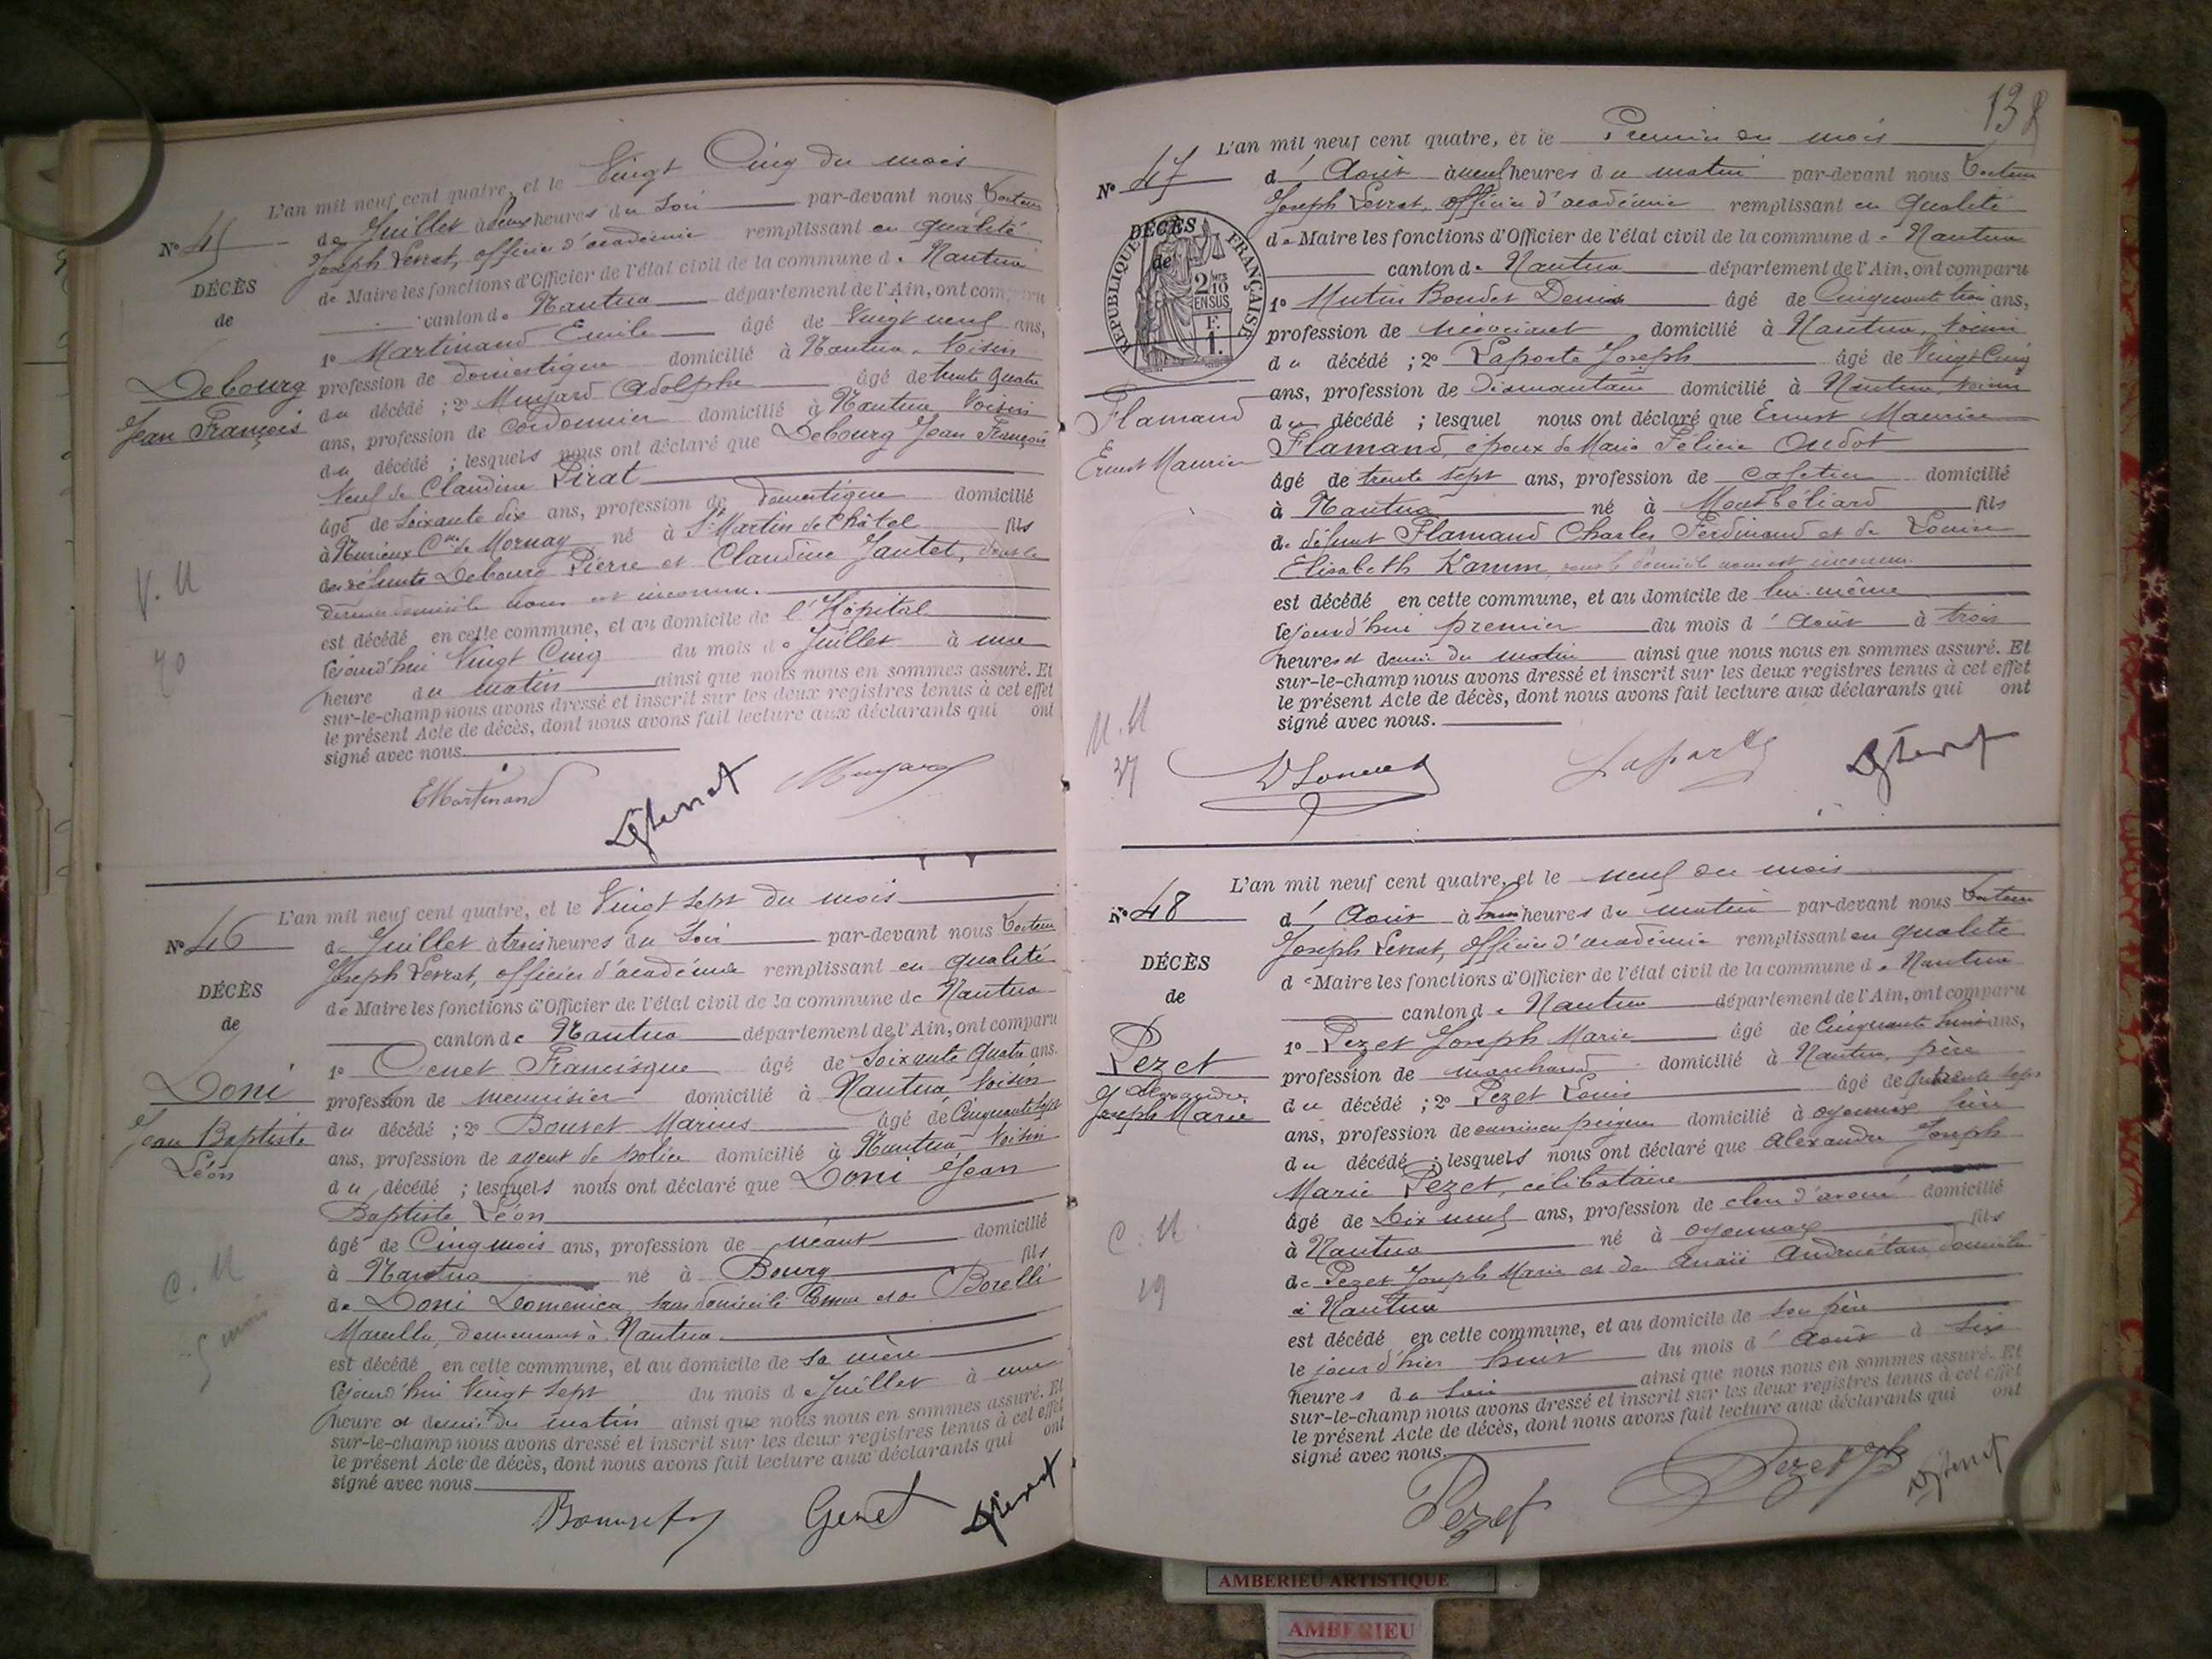 L'an mil neuf cent quatre, et le Vingt Cinq du mois
N° 45
de Juillet à deux heures du Soir par-devant nous Docteur
Joseph Levrat, officier d'académie remplissant en qualité
DÉCÈS
de Maire les fonctions d'Officier de l'état civil de la commune de Nantua
de
canton de Nantua département de l'Ain, ont comparu
1° Martinand Emile âgé de Vingt neuf ans,
Debourg
profession de domestique domicilié à Nantua, Voisin
Jean François
du décédé ; 2° Adolphe âgé de trente quatre
ans, profession de Cordonnier domicilié à Nantua Voisin
du décédé ; lesquels nous ont déclaré que Debourg Jean François
Veuf de Claudine Pirat
âgé de Soixante dix ans, profession de domestique domicilié
à Nurieux Cne de Mornay né à St Martin de Châtel fils
de défunts Debourg Pierre et Claudine Jantet, dont le
V. M
dernier domicile nous est inconnu.
est décédé en cette commune, et au domicile de l'Hôpital
70
Cejourd'hui Vingt Cinq du mois de Juillet à une
heure du matin ainsi que nous nous en sommes assuré. Et
sur-le-champ nous avons dressé et inscrit sur les deux registres tenus à cet effet
le présent Acte de décès, dont nous avons fait lecture aux déclarants qui ont
signé avec nous.
EMartinand
L'an mil neuf cent quatre, et le Vingt Sept du mois
N° 46
de Juillet à trois heures du Soir par-devant nous Docteur
Joseph Levrat, officier d'académie remplissant en qualité
DÉCÈS
de Maire les fonctions d'Officier de l'état civil de la commune de Nantua
de
canton de Nantua département de l'Ain, ont comparu
1° Genet Francisque âgé de Soixante Quatre ans.
Doni
profession de menuisier domicilié à Nantua Voisin
Jean Baptiste
du décédé ; 2° Marius âgé de Cinquante Sept
Léon
ans, profession de agent de police domicilié à Nantua Voisin
du décédé ; lesquels nous ont déclaré que Doni Jean
Baptiste Léon
âgé de Cinq mois ans, profession de néant domicilié
à Nantua né à Bourg fils
C. M
de Doni Domenica, sans domicile connu et de Borelli
5 mois
Marcella, demeurant à Nantua
est décédé en cette commune, et au domicile de sa mère
Cejourd'hui Vingt Sept du mois de Juillet à une
heure et demie du matin ainsi que nous nous en sommes assuré. Et
sur-le-champ nous avons dressé et inscrit sur les deux registres tenus à cet effet
le présent Acte de décès, dont nous avons fait lecture aux déclarants qui ont
signé avec nous.
Genet
138
L'an mil neuf cent quatre, et le Premier du mois
N° 47
d'Août à neuf heures du matin par-devant nous Docteur
Joseph Levrat, officier d'académie remplissant en qualité
DÉCÈS
de
RÉPUBLIQUE FRANÇAISE
2 10 EN SUS
F. 1.
de Maire les fonctions d'Officier de l'état civil de la commune de Nantua
canton de Nantua département de l'Ain, ont comparu
1° Mutin Boudet Denis âgé de Cinquante trois ans,
profession de négociant domicilié à Nantua, Voisin
du décédé ; 2° Laporte Joseph âgé de Vingt Cinq
ans, profession de domicilié à Nantua, Voisin
Flamand
du décédé ; lesquel nous ont déclaré que Ernest Maurice
Ernest Maurice
Flamand, époux de Marie Félicie Oudot
âgé de trente Sept ans, profession de cafetier domicilié
à Nantua né à Montbéliard fils
de défunt Flamand Charles Ferdinand et de Louise
Elisabeth Kamm, dont le domicile nous est inconnu.
est décédé en cette commune, et au domicile de lui-même
Cejourd'hui premier du mois d'Août à trois
heures et demie du matin ainsi que nous nous en sommes assuré. Et
sur-le-champ nous avons dressé et inscrit sur les deux registres tenus à cet effet
le présent Acte de décès, dont nous avons fait lecture aux déclarants qui ont
M. M
signé avec nous.
37
Laporte
L'an mil neuf cent quatre, et le neuf du mois
N° 48
d'Août à huit heures du matin par-devant nous Docteur
Joseph Levrat, officier d'académie remplissant en qualité
DÉCÈS
de Maire les fonctions d'Officier de l'état civil de la commune de Nantua
de
canton de Nantua département de l'Ain, ont comparu
1° Pezet Joseph Marie âgé de Cinquante huit ans,
Pezet
profession de marchand domicilié à Nantua, père
Alexandre
Joseph Marie
du décédé ; 2° Pezet Louis âgé de
ans, profession de domicilié à Oyonnax
du décédé ; lesquels nous ont déclaré que Alexandre Joseph
Marie Pezet, célibataire
âgé de Dix neuf ans, profession de clerc d'avoué domicilié
à Nantua né à Oyonnax fils
C. M
de Pezet Joseph Marie et de Anaïs domiciliés
19
à Nantua
est décédé en cette commune, et au domicile de son père
le jour d'hier huit du mois d'Août à Six
heures du Soir ainsi que nous nous en sommes assuré. Et
sur-le-champ nous avons dressé et inscrit sur les deux registres tenus à cet effet
le présent Acte de décès, dont nous avons fait lecture aux déclarants qui ont
signé avec nous.
Pezet
AMBERIEU ARTISTIQUE
AMBERIEU